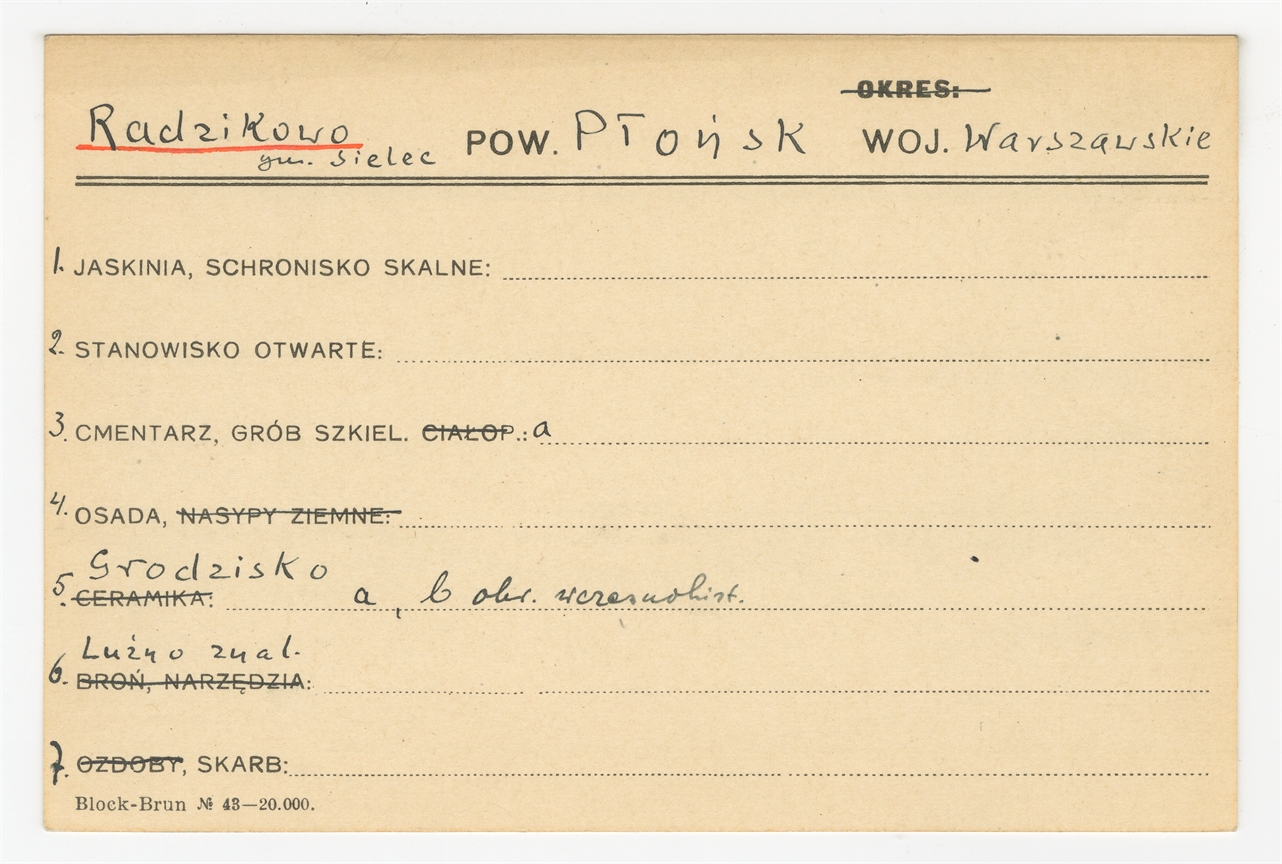 OKRES:
Radzikowo POW. Płońsk WOJ. Warszawskie
gm. Sielec
1. JASKINIA, SCHRONISKO SKALNE:
2. STANOWISKO OTWARTE:
3. CMENTARZ, GRÓB SZKIEL. CIAŁOP.: a
4. OSADA, NASYPY ZIEMNE:
Grodzisko
5. CERAMIKA: a, b okr. wczesnohist.
Luźno znal.
6. BROŃ, NARZĘDZIA:
7. OZDOBY, SKARB:
Block-Brun № 43—20.000.